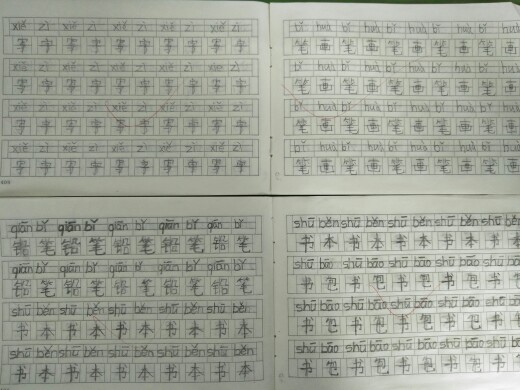 xiě zì xiě zì xiě zì xiě zì xiě zì
写 字 写 字 写 字 写 字 写 字
xiě zì xiě zì xiě zì xiě zì xiě zì
写 字 写 字 写 字 写 字 写 字
xiě zì xiě zì xiě zì xiě zì xiě zì
写 字 写 字 写 字 写 字 写 字
xiě zì xiě zì xiě zì xiě zì xiě zì
写 字 写 字 写 字 写 字 写 字
bǐ huà bǐ huà bǐ huà bǐ huà bǐ huà
笔 画 笔 画 笔 画 笔 画 笔 画
bǐ huà bǐ huà bǐ huà bǐ huà bǐ huà
笔 画 笔 画 笔 画 笔 画 笔 画
bǐ huà bǐ huà bǐ huà bǐ huà bǐ huà
笔 画 笔 画 笔 画 笔 画 笔 画
bǐ huà bǐ huà bǐ huà bǐ huà bǐ huà
笔 画 笔 画 笔 画 笔 画 笔 画
qiān bǐ qiān bǐ qiān bǐ qiān bǐ qiān bǐ
铅 笔 铅 笔 铅 笔 铅 笔 铅 笔
qiān bǐ qiān bǐ qiān bǐ qiān bǐ qiān bǐ
铅 笔 铅 笔 铅 笔 铅 笔 铅 笔
shū běn shū běn shū běn shū běn shū běn
书 本 书 本 书 本 书 本 书 本
shū běn shū běn shū běn shū běn shū běn
书 本 书 本 书 本 书 本 书 本
shū běn shū běn shū běn shū běn shū běn
书 本 书 本 书 本 书 本 书 本
shū bāo shū bāo shū bāo shū bāo shū bāo
书 包 书 包 书 包 书 包 书 包
shū bāo shū bāo shū bāo shū bāo shū bāo
书 包 书 包 书 包 书 包 书 包
shū bāo shū bāo shū bāo shū bāo shū bāo
书 包 书 包 书 包 书 包 书 包